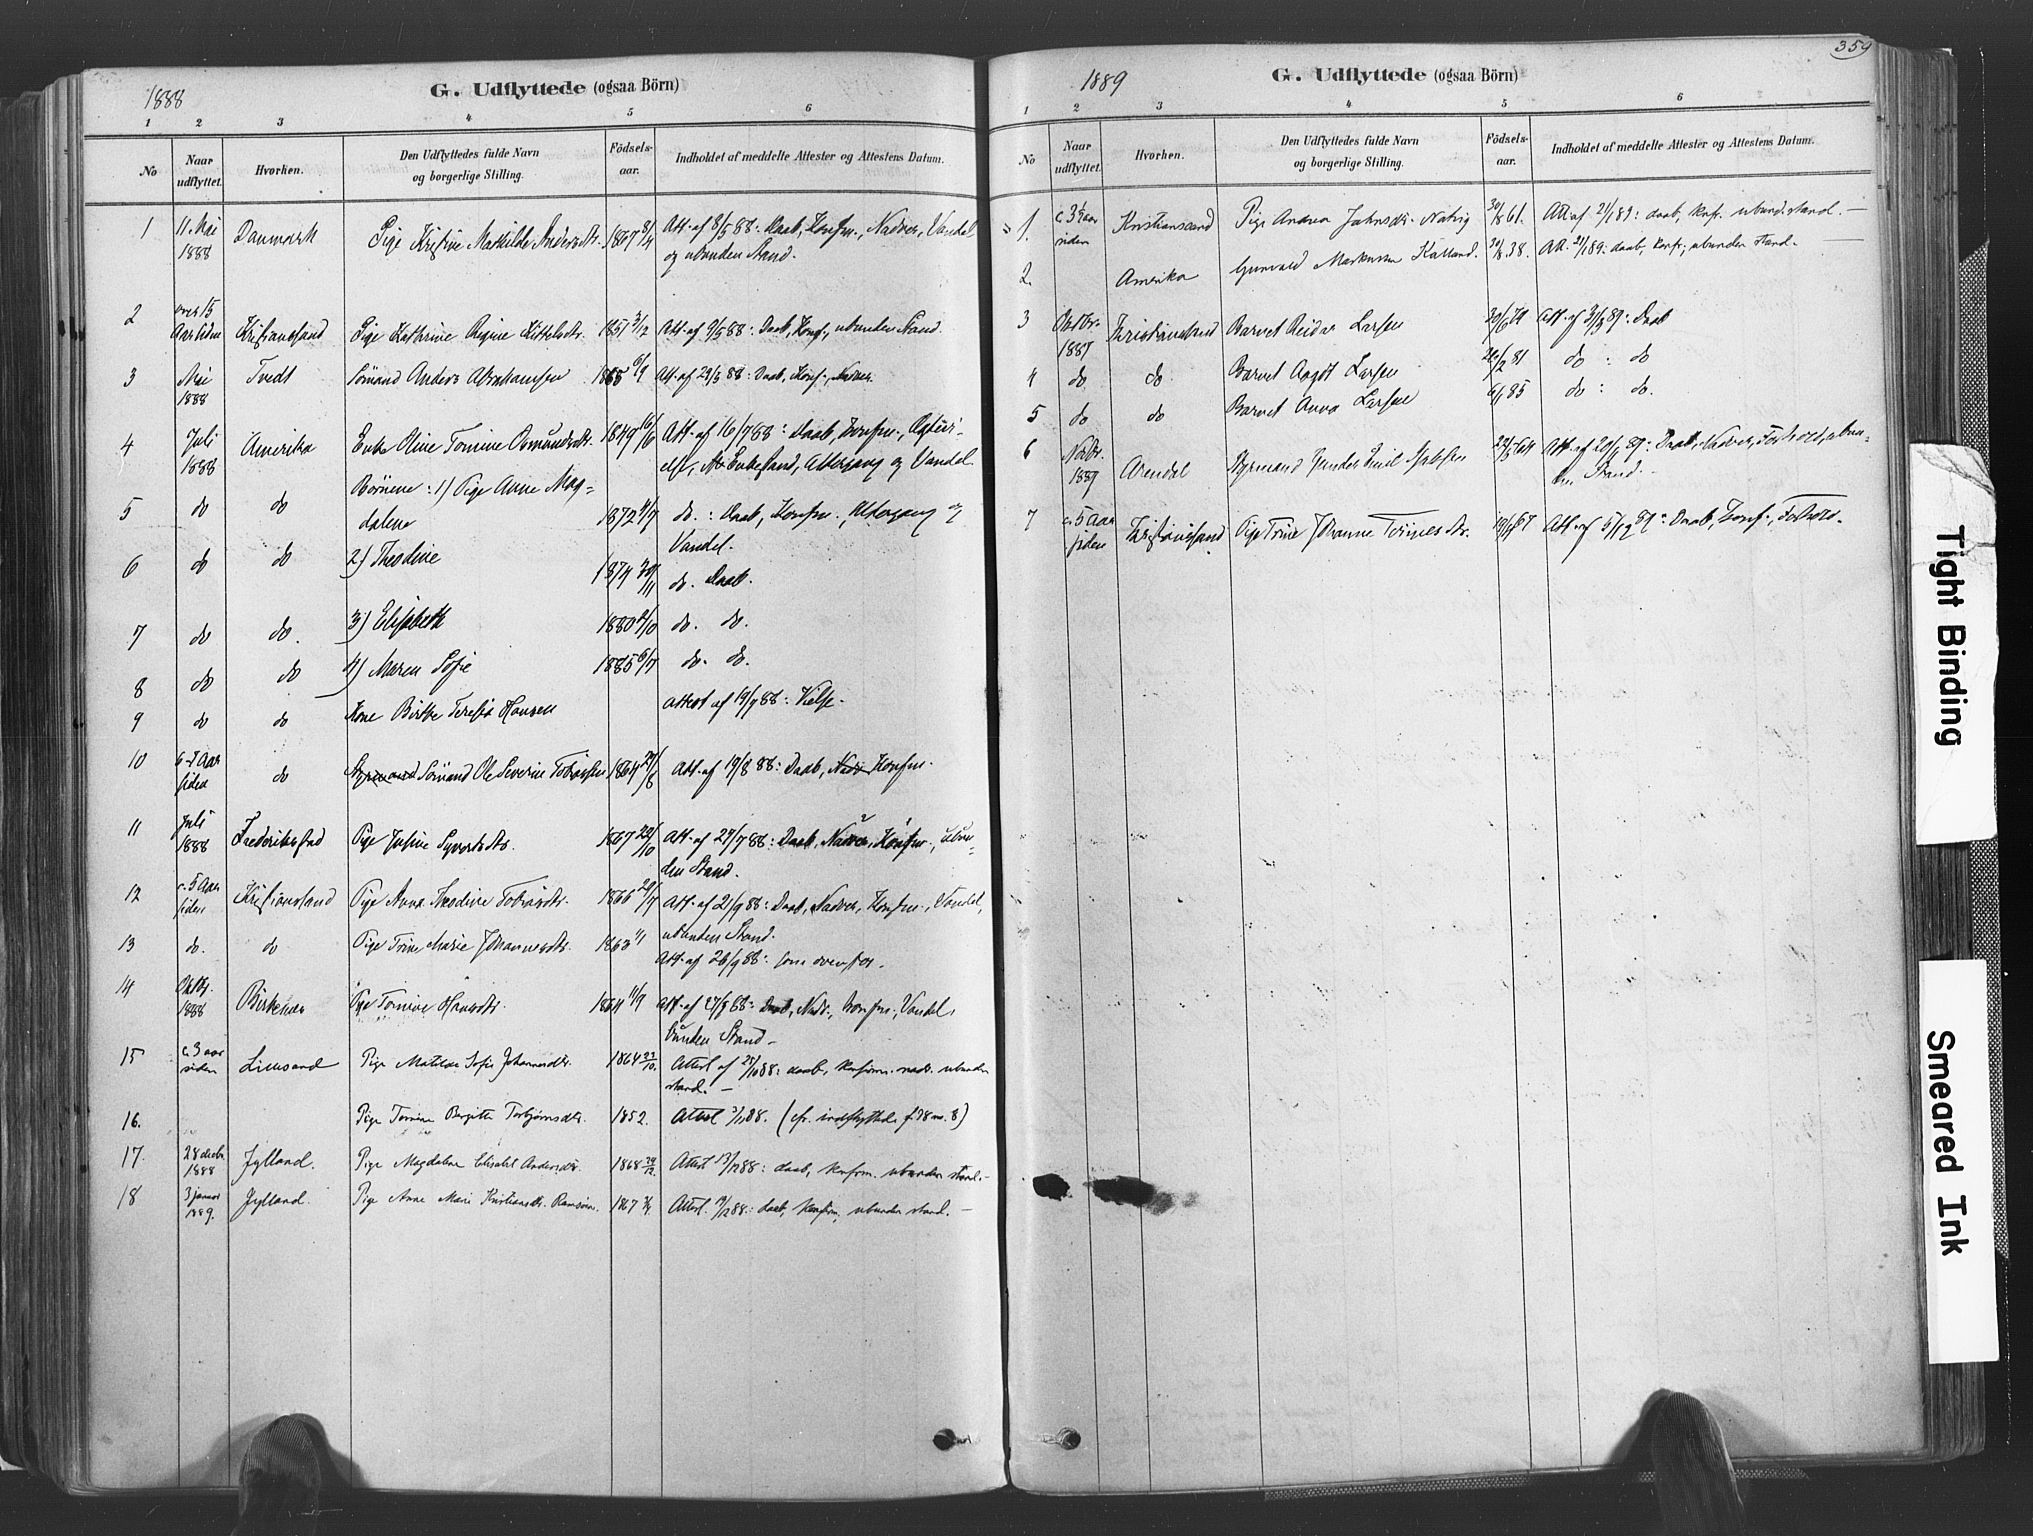 1888
G. Udflyttede (ogsaa Börn)
1 2 3 4 5 6
No
Naar udflyttet.
Hvorhen.
Den Udflyttedes fulde Navn og borgerlige Stilling.
Födsels-aar.
Indholdet af meddelte Attester og Attestens Datum.
1 11 Mai 1888 Danmark Pige Kristine Mathilde Andersdtr. 1867 8/4 Att. af 8/5 88: Daab, Konfm., Nadver, Vandel
og ubunden Stand.
2 over 15 Aar siden Kristianssand Pige Kathrine Regine Kittelsdtr. 1851 3/12 Att. af 9/5 88: Daab, Konf., ubunden Stand.
3 Mai 1888 Tvedt Sömand Anders Abrahamsen 1868 6/9 Att. af 29/5 88: Daab, Konf., Nadver.
4 Juli 1888 Amerika Enke Oline Tomine Osmundsdtr. 1849 16/6 Att. af 16/7 88: Daab, Konfm.,
Enkestand, Altergang og Vandel.
5 do do Börnene: 1) Pige Anne Mag=
dalene 1872 4/7 do.: Daab, Konfm., Altergang og
Vandel.
6 do do 2) Theodine 1874 30/11 do. Daab.
7 do do. 3) Elisabeth 1880 2/10 do. do.
8 do do 4) Maren Sofie 1885 6/7 do. do.
9 do do Kone Birthe Teresia Hansen Attest af 19/9 88: Vielse.
10 6-7 Aar siden do Styrmand Sömand Ole Severin Tobiassen 1864 24/8 Att. af 19/8 88: Daab, Nadv Konfm.
11 Juli 1888 Frederikstad Pige Josine Syvertsdtr. 1867 22/10 Att. af 24/7 88: Daab, Nadver, Konfm., ubun-
den Stand.
12 c. 5 Aar siden Kristianssand Pige Anna Theodine Tobiasdtr. 1866 29/7 Att. af 21/9 88: Daab, Nadver, Konfm., Vandel,
ubunden Stand.
13 do. do Pige Trine Marie Johannesdtr. 1863 1/1 Att. af 26/9 88: som ovenfor.
14 Oktbr. 1888 Birkenes Pige Tomine Hansdtr. 1864 11/9 Att. af 27/9 88: Daab, Nadv., Konfm., Vandel,
bunden Stand.
15 c. 3 aar siden Lillesand Pige Matilde Sofie Johannesdtr. 1864 27/10. Attest af 25/10 88: daab, konfirm. nadv. ubunden
stand. —
16. Pige Tomine Bergitte Torbjørnsdtr. 1852. Attest 3/11 88. (cfr. indflyttede f. 78 no. 8)
17. 28 decbr 1888 Jylland. Pige Magdalene Elisabet Andersdtr. 1868 24/12. Attest 13/12 88: daab, konfirm. ubunden stand. —
18 3 januar 1889. Jylland. Pige Anne Marie Kristiansdtr. 1867 Attest 19/12 88: daab, konfirm, ubunden stand. —
1889
359
G. Udflyttede (ogsaa Börn)
1 2 3 4 5 6
No
Naar udflyttet.
Hvorhen.
Den Udflyttedes fulde Navn og borgerlige Stilling.
Födsels-aar.
Indholdet af meddelte Attester og Attestens Datum.
1. c. 3½ aar siden Kristianssand Pige Andrea Jahnsdtr. Natvig 30/8 61. Att. af 2/1 89: daab, konf. ubund. stand. —
2. Amerika Gunvald Markussen Kalland. 30/8. 38. Att. 2/1 89: daab, konf., ubunden stand. —
3 Oktbr. 1887 Kristianssand Barnet Reidar Larsen Att. af 3/3 89: Daab
4 do do Barnet Aagot Larsen 26/2 81 do : do
5 do do Barnet Anna Larsen 6/1 85 do : do.
6 Novbr. 1889 Arendal Styrmand Gunder Emil 22/5 64 Att. af Daab, Nadver, Forhold, ubun-
den Stand.
7 c. 5 Aar siden Kristianssand Pige Trine Johanne Tönnesdtr. 19/6 67 Att. af 5/12 89: Daab, Konf., Forhold.
Tight Binding
Smeared Ink